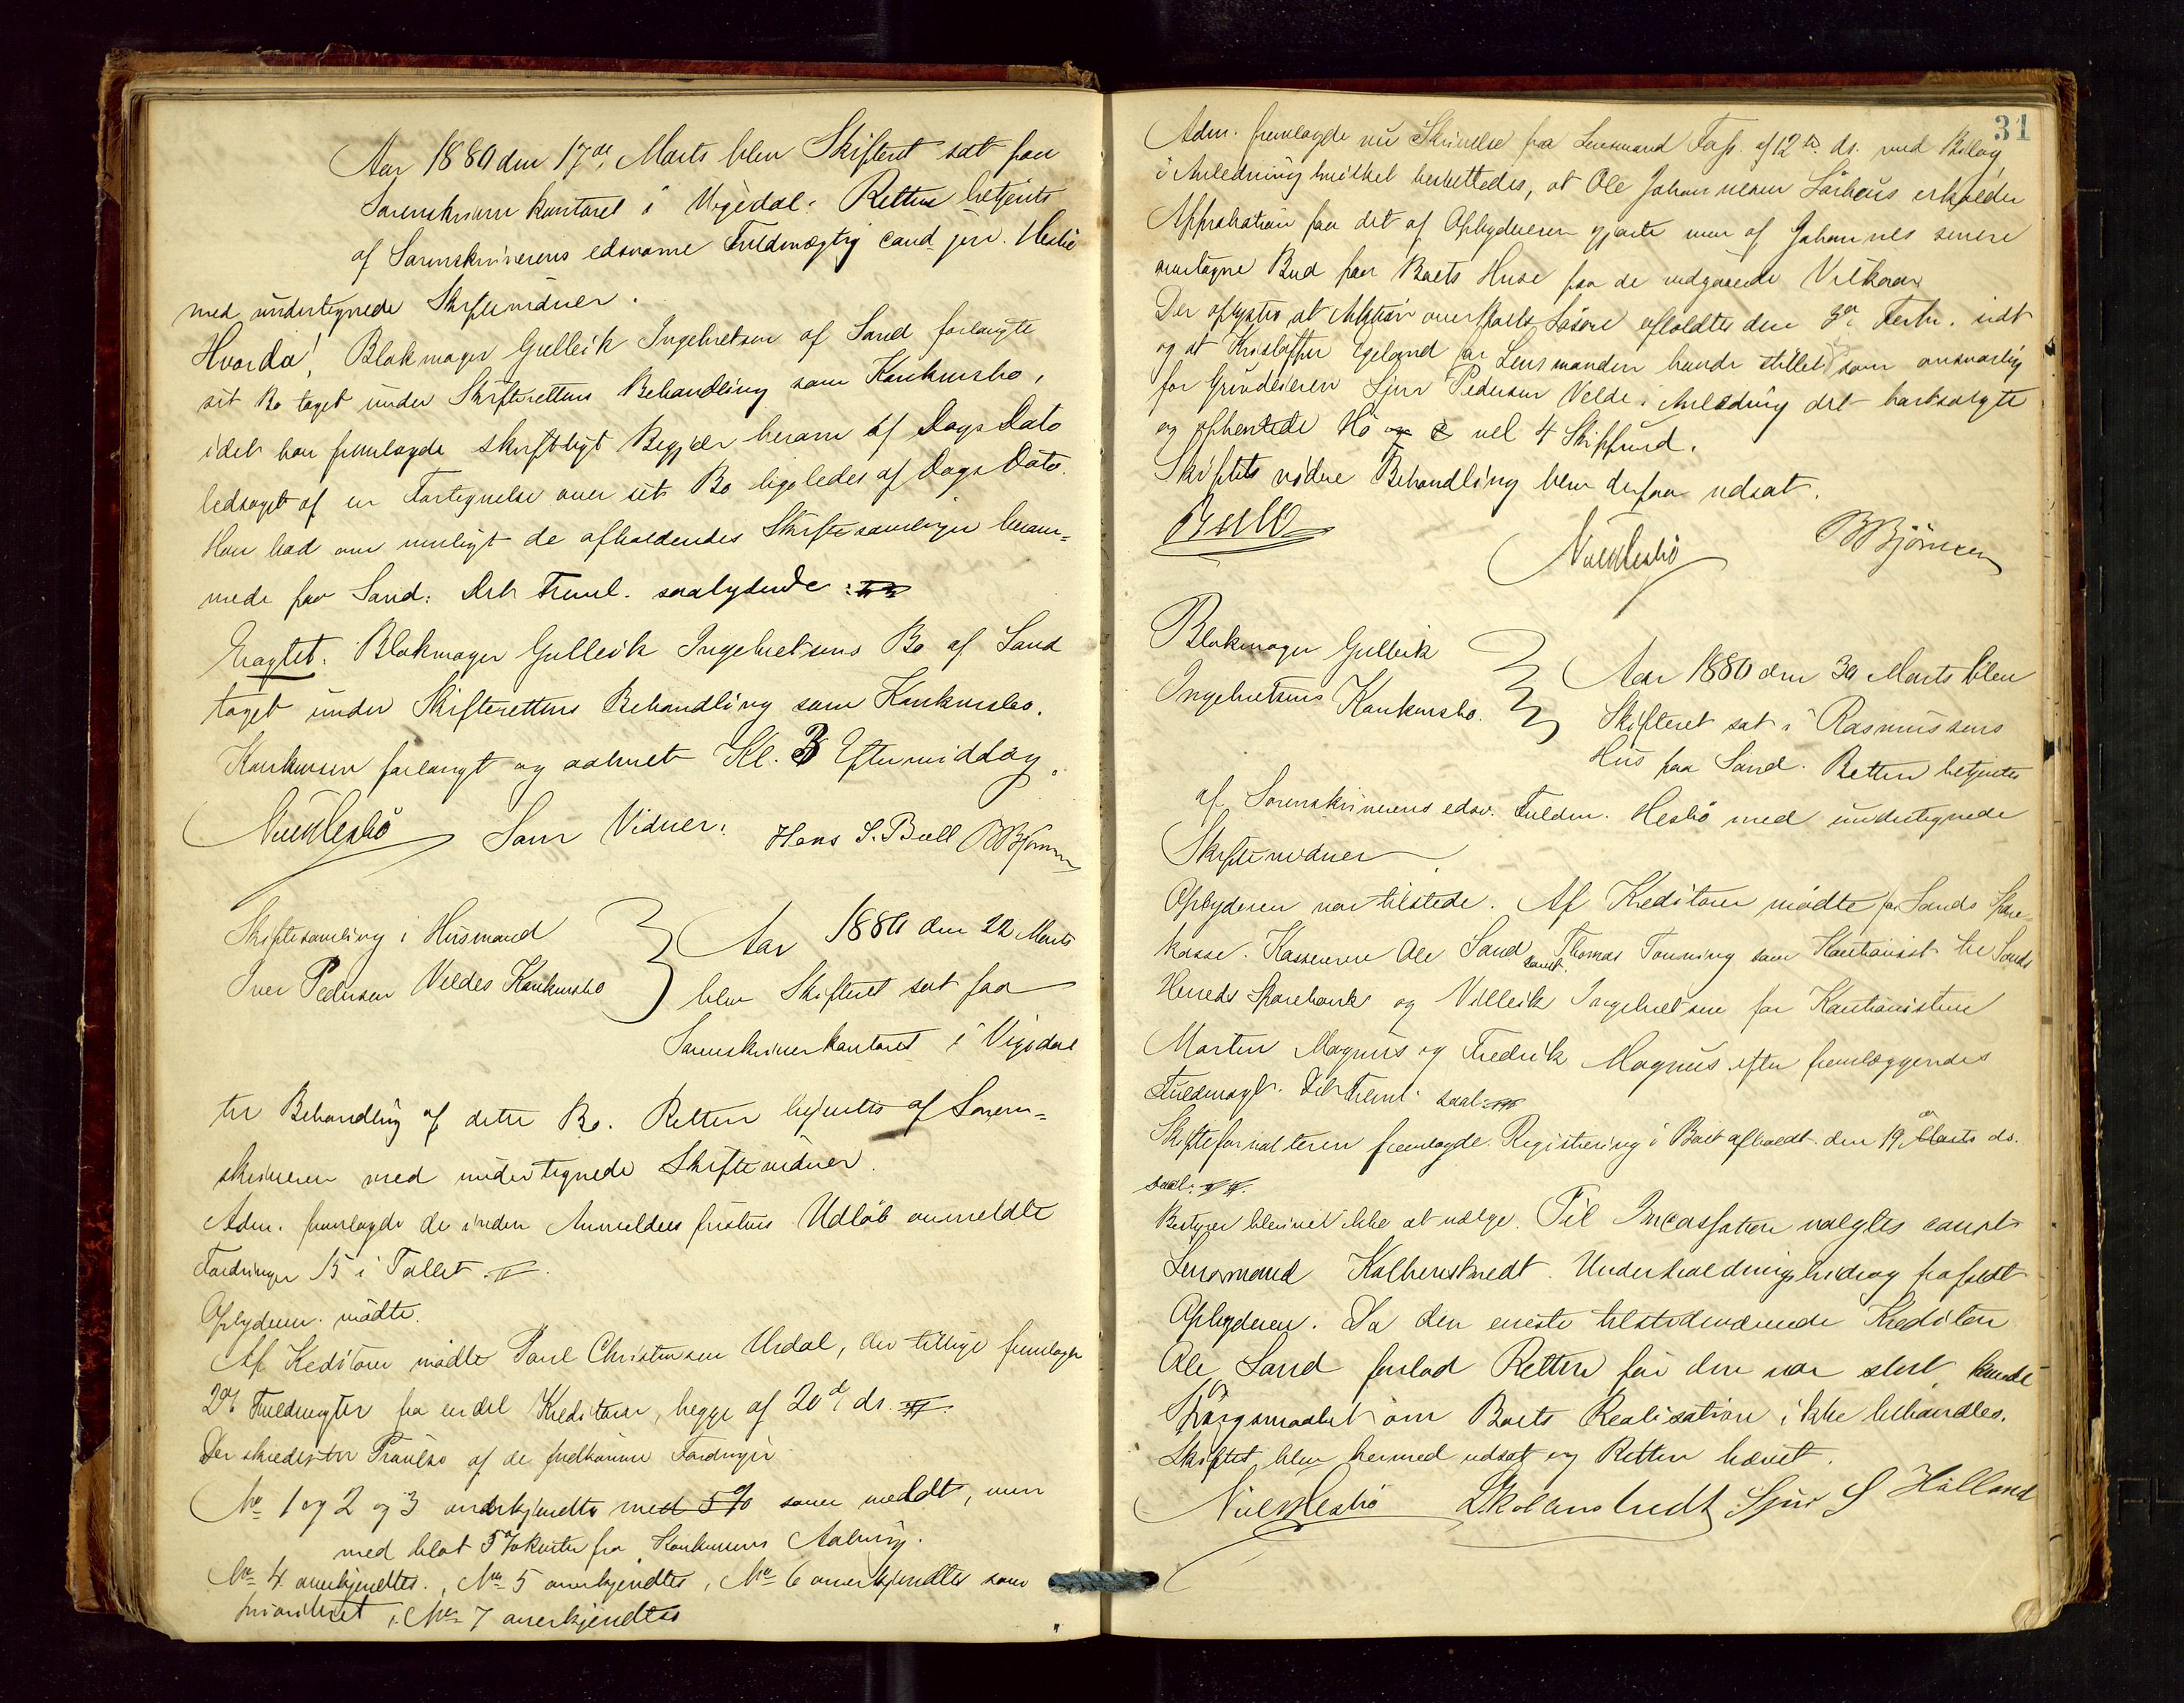 Aar 1880 den 17de Marts blev Skifteret sat paa
Sorenskriverkontoret i Vigedal. Retten betjents
af Sorenskriverens edsvorne Fuldmægtig cand. jur. Hesbö
med undertegnede Skiftevidner.
Hvorda! Blokmager Gulleik Ingebretsen af Sand forlangte
sit Bo taget under Skifterettens Behandling som Konkursbo,
idet han fremlagde skriftligt Begjær herom af Dags Dato
ledsaget af en Fortegnelse over sit Bo ligeledes af Dags Dato.
Han bad om muligt de afholdendes Skiftesamlinger beram-
mede paa Sand. Det Freml. saalydende:
Eragtet: Blokmager Gulleik Ingebretsens Bo af Sand
taget under Skifterettens Behandling som Konkursbo.
Konkursen forlangt og aabnet Kl. 3 Eftermiddag.
Som Vidner: Hans S. Bull BBjörnsen
Skiftesamling i Husmand
Iver Pedersen Veldes Konkursbo
Aar 1880 den 22 Marts
blev Skifteret sat paa
Sorenskriverkontoret i Vigedal
til Behandling af dette Bo. Retten betjentes af Soren-
skriveren med undertegnede Skiftevidner.
Adm. fremlagde de inden Anmeldelsesfristens Udlöb anmeldte
Fordringer 15 i Tallet.
Opbyderen mödte.
Af Kreditorer mödte Poul Christensen Urdal, der tillige fremlagde
2de Fuldmagter fra endel Kreditorer, begge af 20de ds.
Der skredes til Prövelse af de indkomne Fordringer
No 1 og 2 og 3 anerkjendtes med 5% som meldt, men
med blot 5% Renter fra Konkursens Aabning.
No 4 anerkjendtes., No 5 anerkjendtes, No 6 anerkjendtes som
prioriteret, No 7 anerkjendtes
31
Adm. fremlagde nu Skrivelse fra Lensmand af 12te ds. med Bilag,
i Anledning hvilket besluttedes, at Ole Johannesen erholder
Approbation paa det af Opbyderen gjorte men af Johannes senere
overtagne Bud paa Boets Huse paa de vedgaaende Vilkaar
Der oplystes at Auktion over Boets Lösöre afholdtes den 3de Febr. sidt
og at Kristoffer Egeland for Lensmanden havde stillet som ansvarlig
for Grundeieren Sjur Pedersen Velde i Anledning det bortsolgte
og afhentede Hö vel 4 Skippund.
Skiftets videre Behandling blev derpaa udsat.
Bull
BBjörnsen
Blokmager Gulleik
Ingebretsens Konkursbo.
Aar 1880 den 30 Marts blev
Skifteret sat i Rasmussens
Hus paa Sand. Retten betjentes
af Sorenskriverens edsv. Fuldm. Hesbö med undertegnede
Skiftevidner
Opbyderen var tilstede. Af Kreditorer mödte for Sands Spare-
kasse. Kassereren Ole Sand samt Thomas Tonning som Kautionist til Sands
Herreds Sparebank og Villeik Ingebretsen for Kautionisterne
Morten Magnus og Fredrik Magnus efter fremlæggendes
Fuldmagt. Det Freml. saal:
Skifteforvalteren fremlagde Registrering i Boet afholdt den 19de Marts ds.
saal:
Bestyrer blev ikke at vælge. Til Incassator valgtes const.
Lensmand Kolbenstvedt. Underholdningsbidrag frafaldt
Opbyderen. Da den eneste tilstedeværende Kreditor
Ole Sand forlod Retten för den var slut, kunde
Spörgsmaalet om Boets Realisation ikke behandles.
Skiftet blev hermed udsat og Retten hævet.
LKolbenstvedt Sjur S Hålland